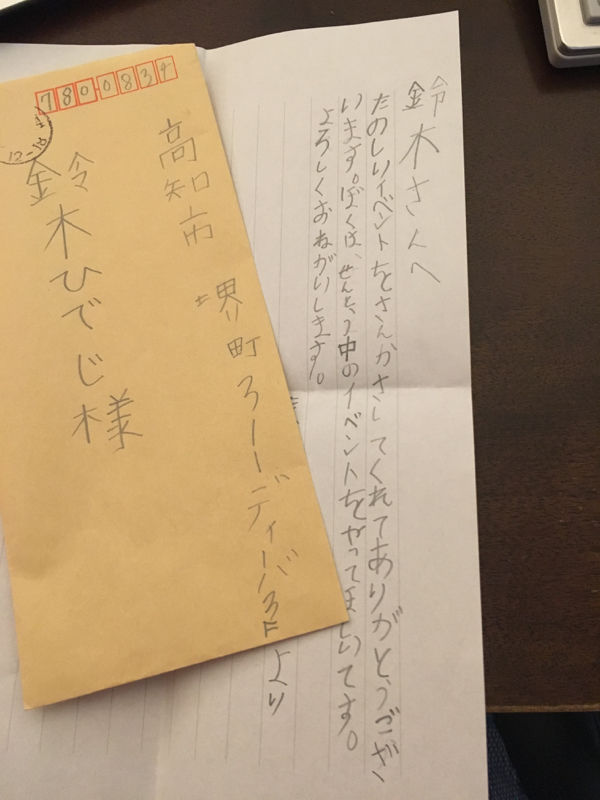 7800834
高知市 堺町 ディーバ3F より
鈴木ひでじ様
鈴木さんへ
たのしいイベントをさんかさしてくれてありがとうござ
います。ぼくは、せんとう中のイベントをやってほしいです。
よろしくおねがいします。